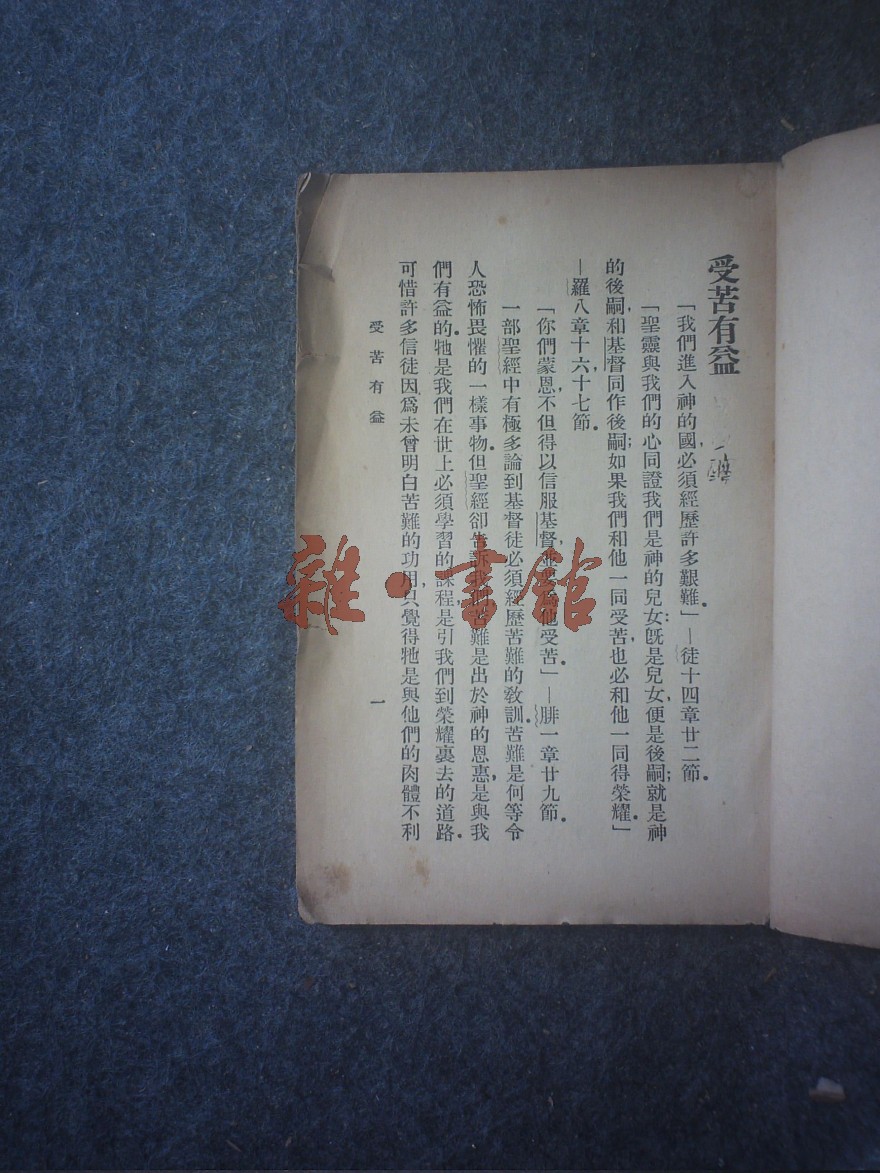 受苦有益
「我們進入神的國,必須經歷許多艱難。」—徒十四章廿二節。
「聖靈與我們的心同證我們是神的兒女:既是兒女,便是後嗣;就是神
的後嗣,和基督同作後嗣;如果我們和他一同受苦,也必和他一同得榮耀。」
—羅八章十六,十七節。
「你們蒙恩,不但得以信服基督,並要為他受苦。」—腓一章廿九節。
一部聖經中有極多論到基督徒必須經歷苦難的教訓。苦難是何等令
人恐怖畏懼的一樣事物。但聖經卻告訴我們苦難是出於神的恩惠,是與我
們有益的。牠是我們在世上必須學習的課程,是引我們到榮耀裏去的道路。
可惜許多信徒因爲未曾明白苦難的功用,只覺得牠是與他們的肉體不利
受苦有益
一
雜·書館